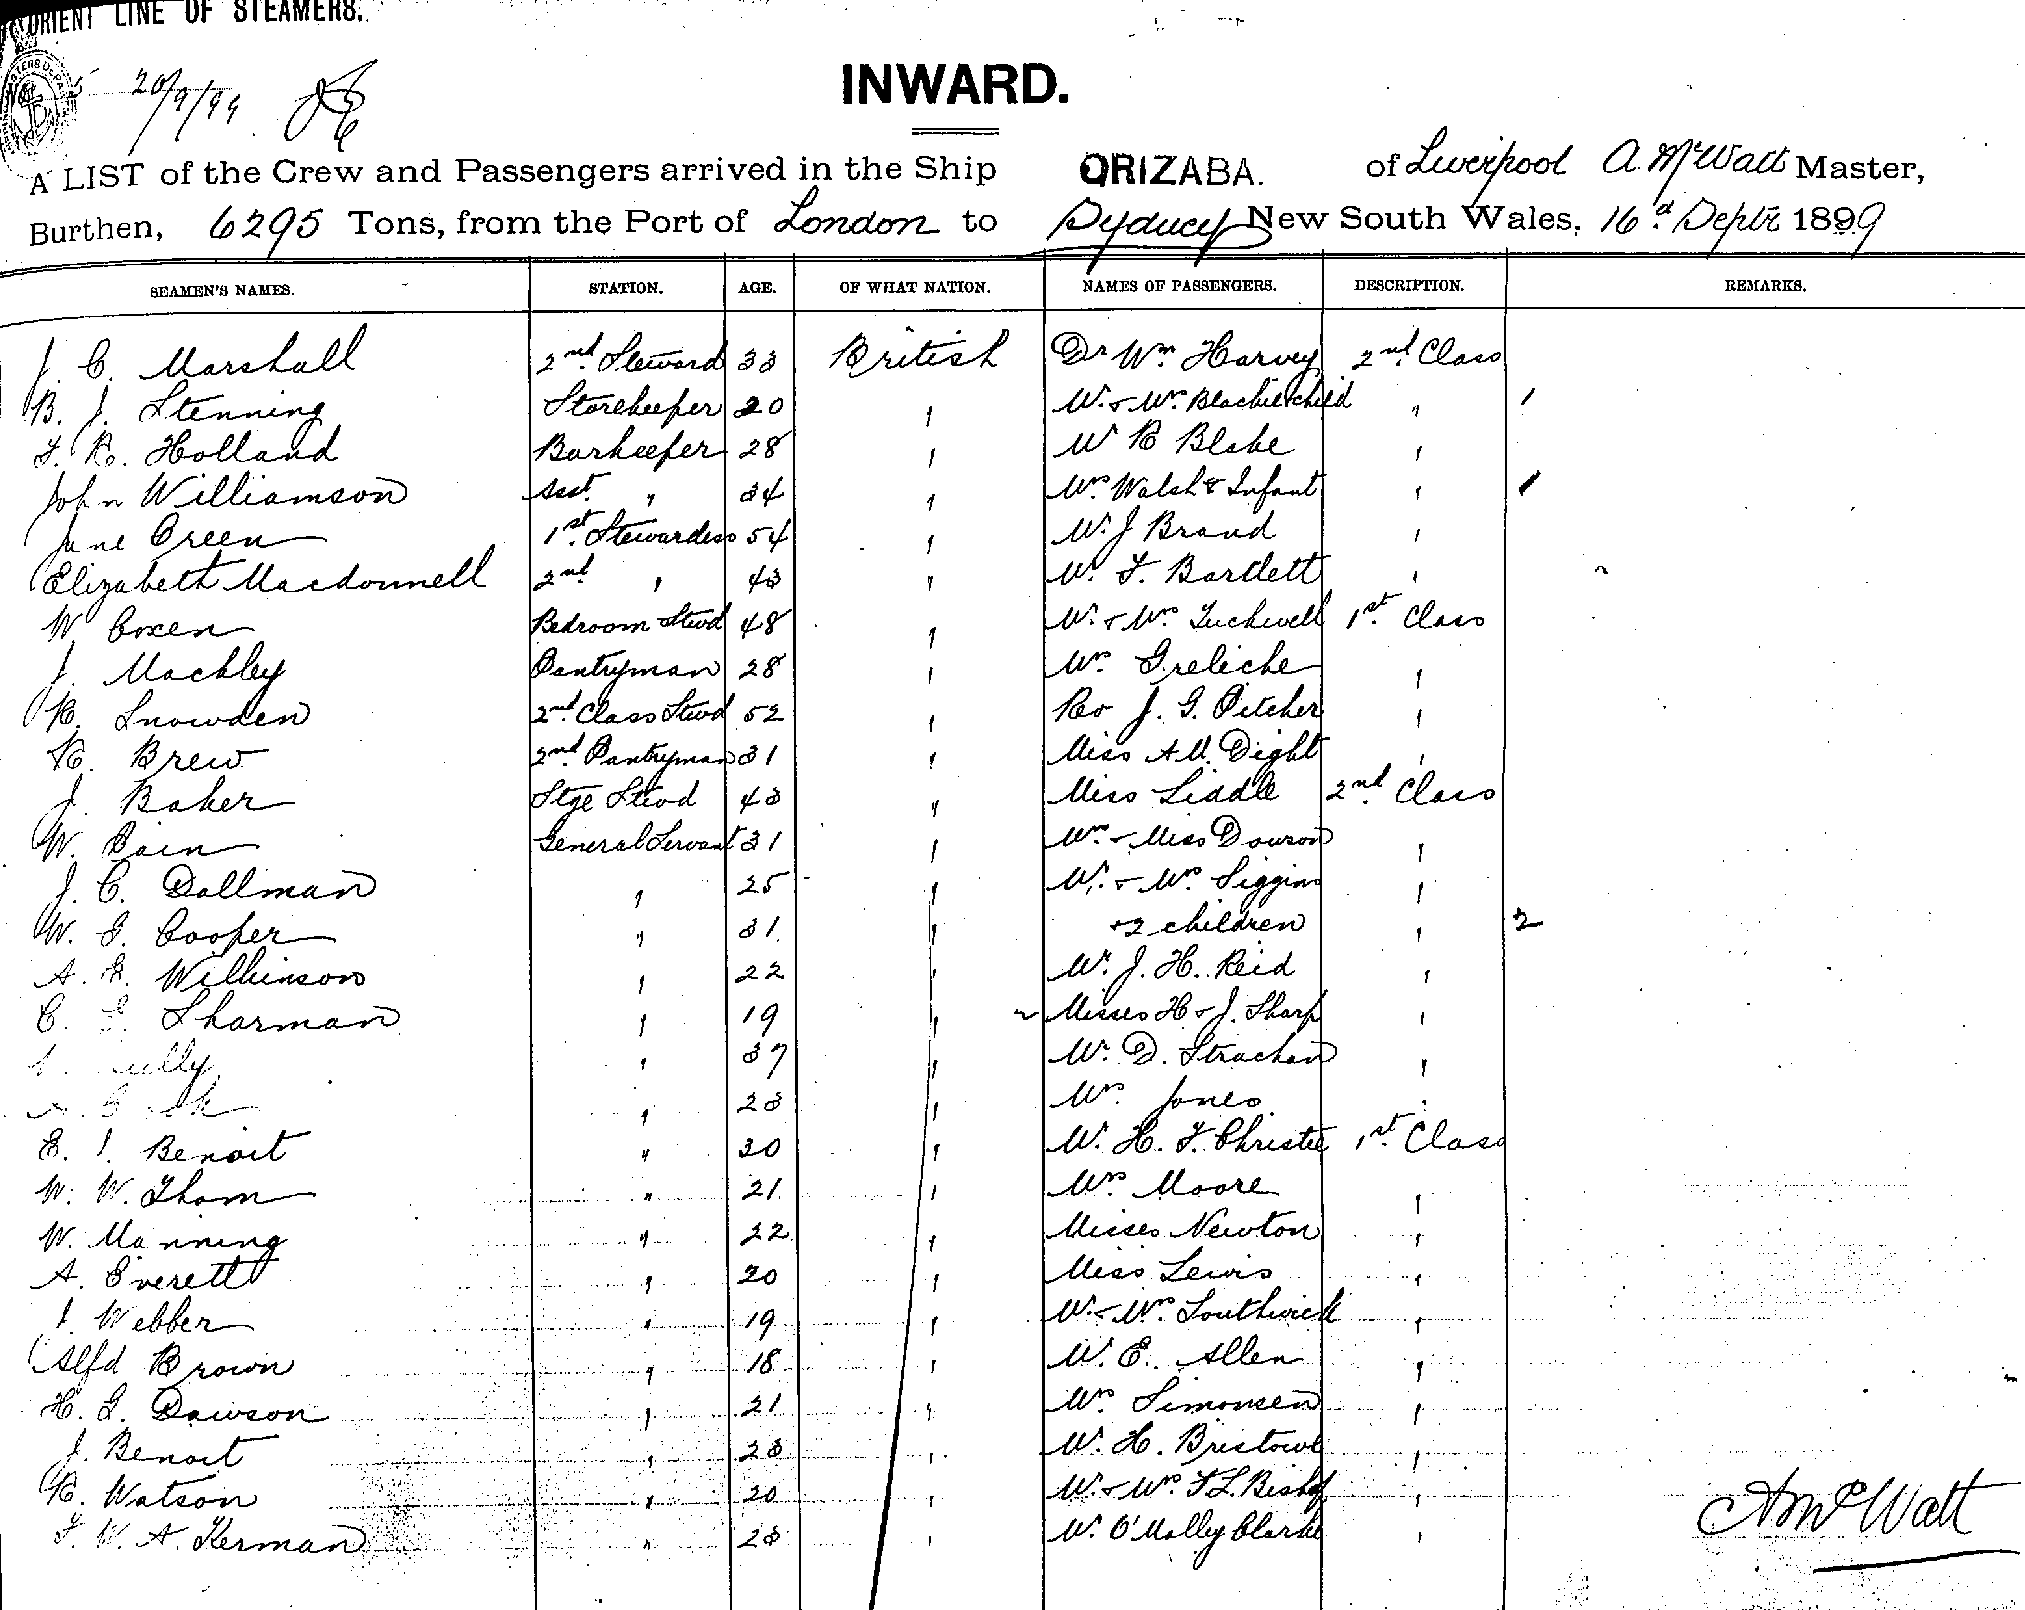 ORIENT LINE OF STEAMERS.
20/9/99
INWARD.
A LIST of the Crew and Passengers arrived in the Ship ORIZABA. of Liverpool A. McWatt Master,
Burthen, 6295 Tons, from the Port of London to Sydney New South Wales, 16th Septr 1899
SEAMEN'S NAMES. STATION. AGE. OF WHAT NATION. NAMES OF PASSENGERS. DESCRIPTION. REMARKS.
J. C. Marshall 2nd Steward 33 British Dr Wm Harvey 2nd Class
B. J. Stenning Storekeeper 20 " Mr & Mrs Blackie & child " 1
F. R. Holland Barkeeper 28 " Mr R Blake "
John Williamson Asst. " 34 " Mrs Walsh & Infant " 1
Jane Green 1st Stewardess 54 " Mr J Brand "
Elizabeth Macdonnell 2nd " 43 " Mr F. Bartlett "
W Coxen Bedroom Stwd 48 " Mr & Mrs Tuckwell 1st Class
J. Mackley Pantryman 28 " Mrs Greliche "
R. Snowden 2nd Class Stwd 52 " Rev J. G. Pitcher "
R. Brew 2nd Pantryman 31 " Miss A M. Dight "
J. Baker Stge Stwd 43 " Miss Liddle 2nd Class
W. Cain General Servant 31 " Mrs & Miss Dowson "
J. C. Dollman " 25 " Mr & Mrs Siggins "
W. G. Cooper " 31 " & 2 children " 2
A. E. Wilkinson " 22 " Mr J. H. Reid "
C. E. Sharman " 19 " Misses H & J. Sharp "
" 37 " Mr D. Strachan "
" 23 " Mrs Jones "
E. J. Benoit " 30 " Mr H. F. Christie 1st Class
W. W. Thom " 21 " Mrs Moore "
W. Manning " 22 " Misses Newton "
A. Everett " 20 " Miss Lewis "
J. Webber " 19 " Mr & Mrs Southwick "
Alfd Brown " 18 " Mr E. Allen "
H. G. Dawson " 21 " Mrs Simonsen "
J. Benoit " 23 " Mr H. Bristowe "
R. Watson " 20 " Mr & Mrs F L. Bishop "
F. W. A. Kerman " 23 " Mr O'Mally Clarke "
A McWatt